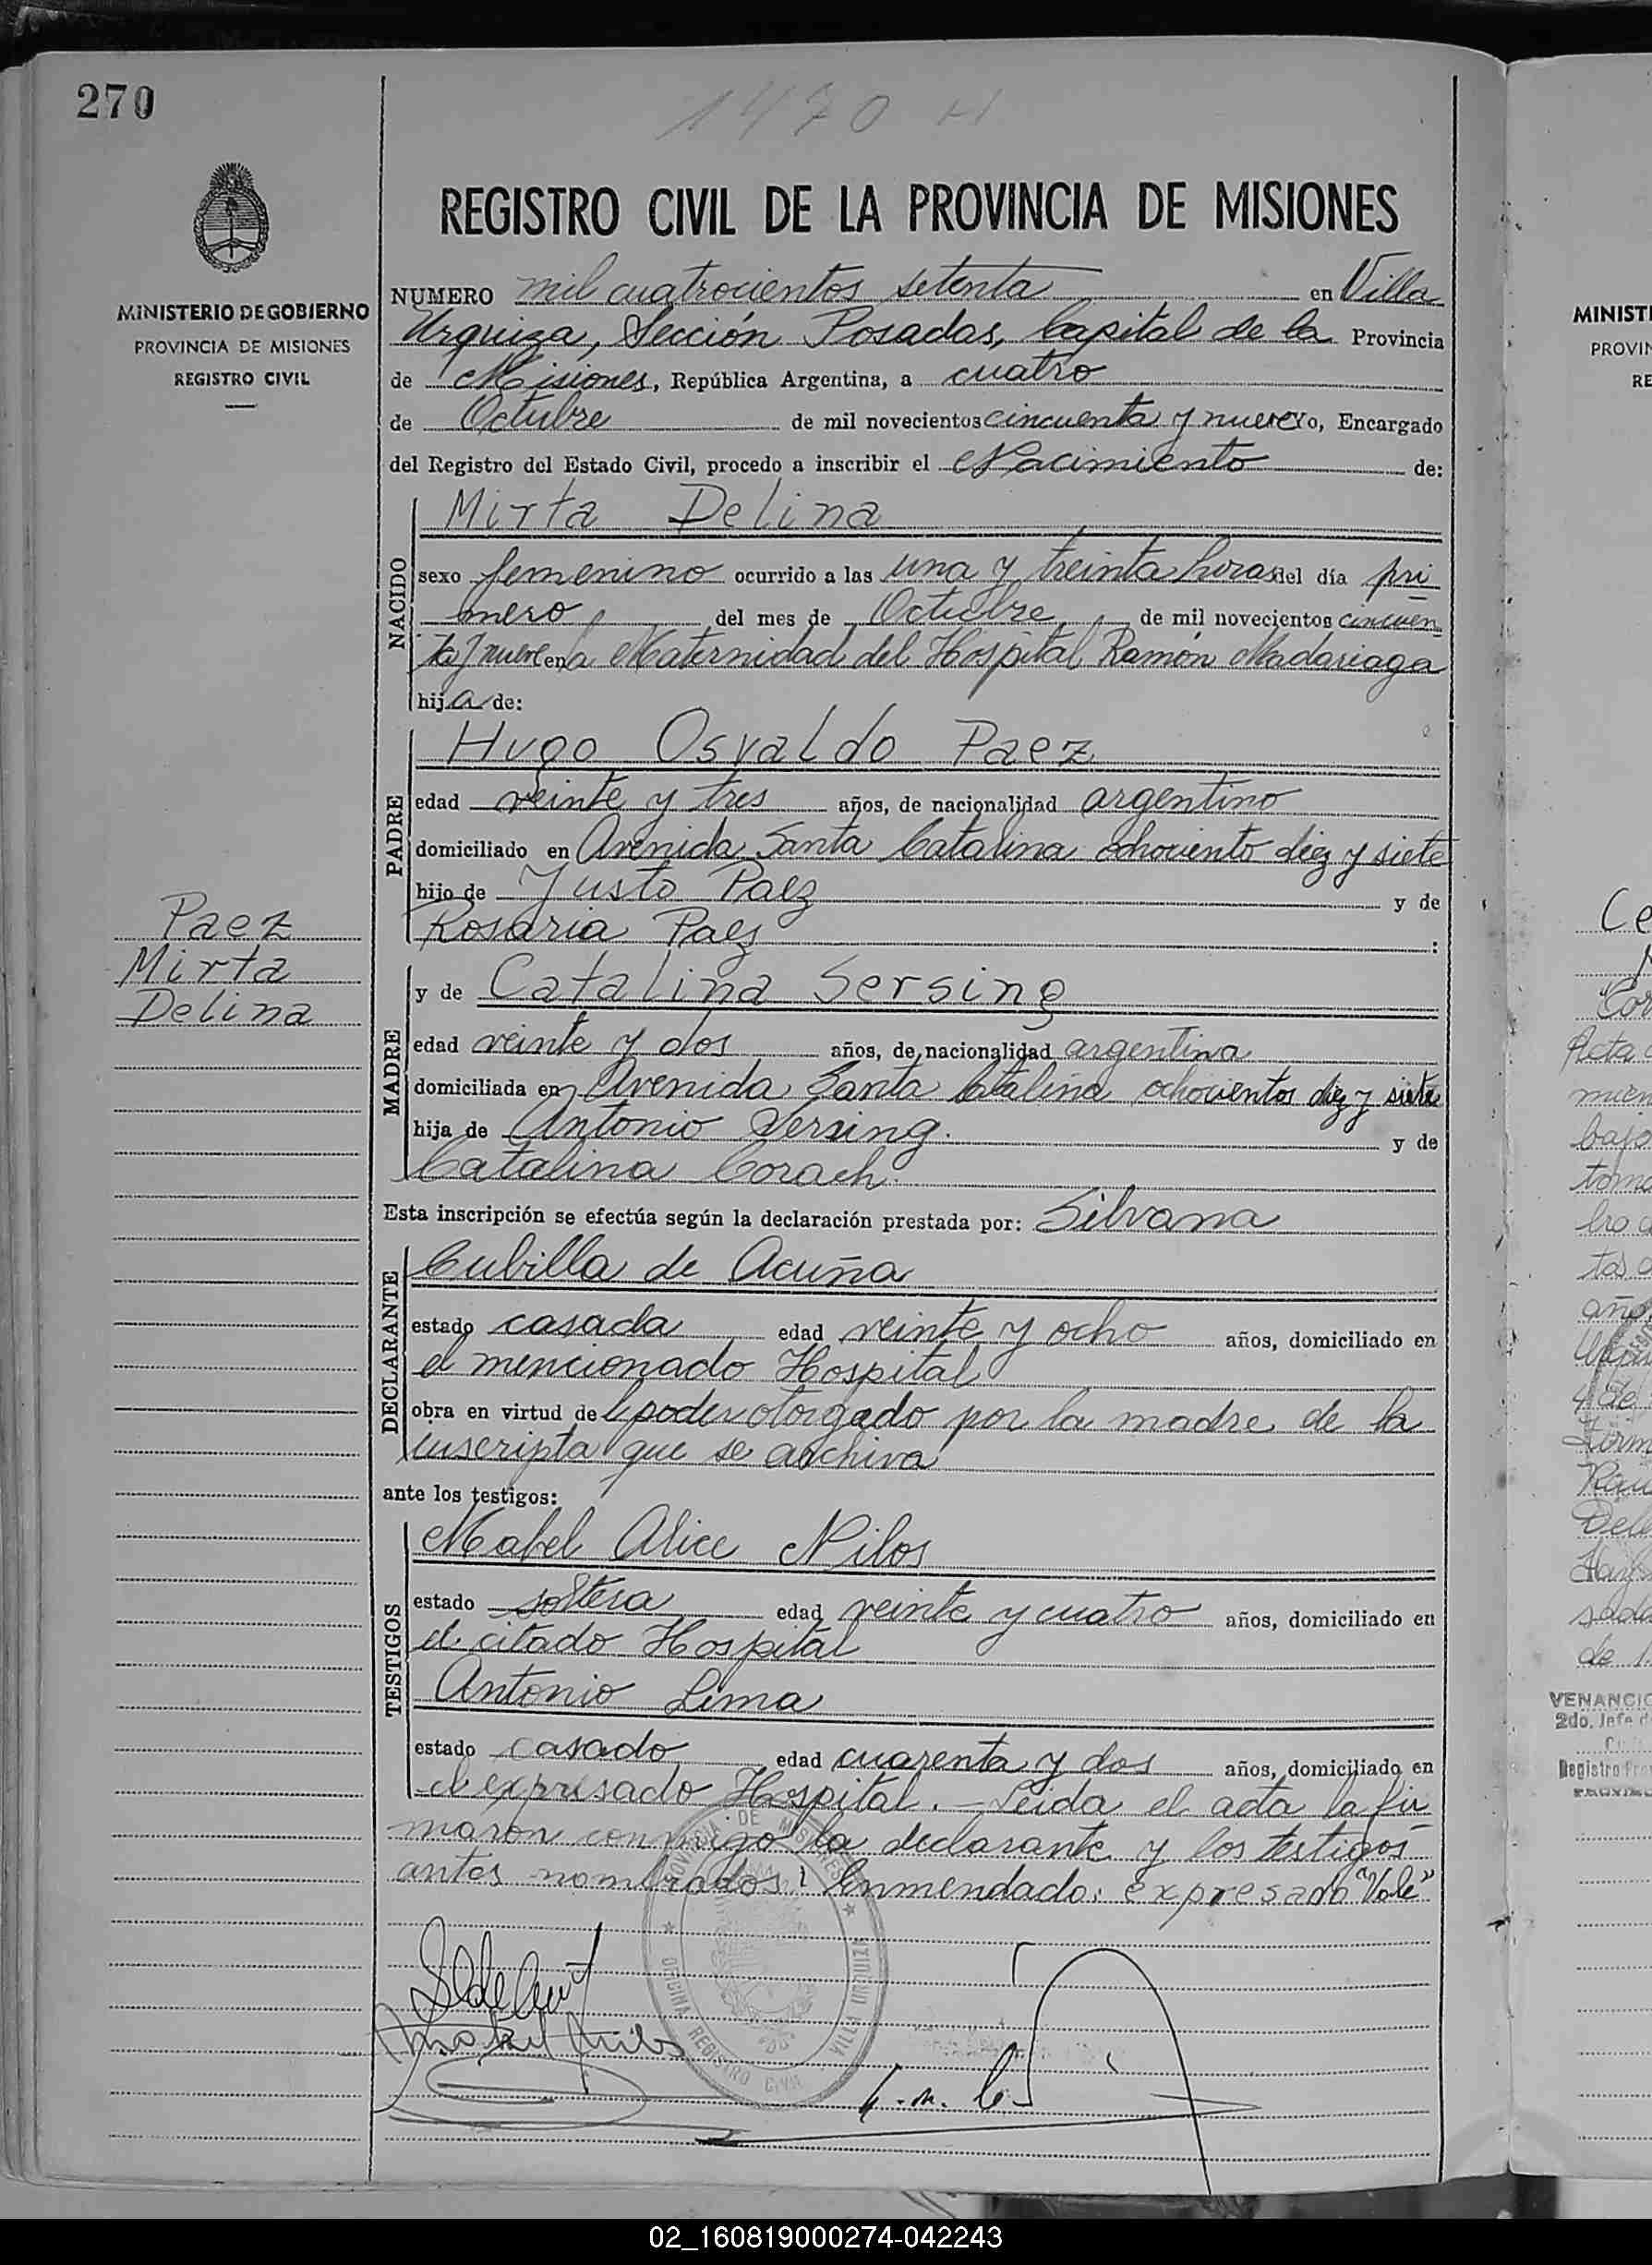 270
1470 H
REGISTRO CIVIL DE LA PROVINCIA DE MISIONES
MINISTERIO DE GOBIERNO
PROVINCIA DE MISIONES
REGISTRO CIVIL
NUMERO mil cuatrocientos setenta en Villa
Urquiza, Sección Posadas, Capital de la Provincia
de Misiones, República Argentina, a cuatro
de Octubre de mil novecientos cincuenta y nueve yo, Encargado
del Registro del Estado Civil, procedo a inscribir el Nacimiento de:
NACIDO
Mirta Delina
sexo femenino ocurrido a las una y treinta horas del día pri
mero del mes de Octubre de mil novecientos cincuen
ta y nueve en la Maternidad del Hospital Ramón Madariaga
hija de:
PADRE
Hugo Osvaldo Paez
edad veinte y tres años, de nacionalidad argentino
domiciliado en Avenida Santa Catalina ochociento diez y siete
hijo de Justo Paez y de
Rosaria Paez :
Paez
Mirta
Delina
MADRE
y de Catalina Sersing
edad veinte y dos años, de nacionalidad argentina
domiciliada en Avenida Santa Catalina ochocientos diez y siete
hija de Antonio Sersing. y de
Catalina Corach.
Esta inscripción se efectúa según la declaración prestada por: Silvana
DECLARANTE
Cubilla de Acuña
estado casada edad veinte y ocho años, domiciliado en
el mencionado Hospital
obra en virtud de poder otorgado por la madre de la
inscripta que se archiva
ante los testigos:
TESTIGOS
Mabel Alice Nilos
estado soltera edad veinte y cuatro años, domiciliado en
el citado Hospital
Antonio Lima
estado casado edad cuarenta y dos años, domiciliado en
el expresado Hospital. - Leida el acta la fir
maron conmigo la declarante y los testigos
antes nombrados: Enmendado: expresado "Vale"
PROVINCIA DE MISIONES
OFICINA REGISTRO CIVIL VILLA URQUIZA
MINISTE
PROVIN
RE
Ce
Acta
bajo
de 1
VENANCIO
2do. Jefe d
Registro Pro
02_160819000274-042243